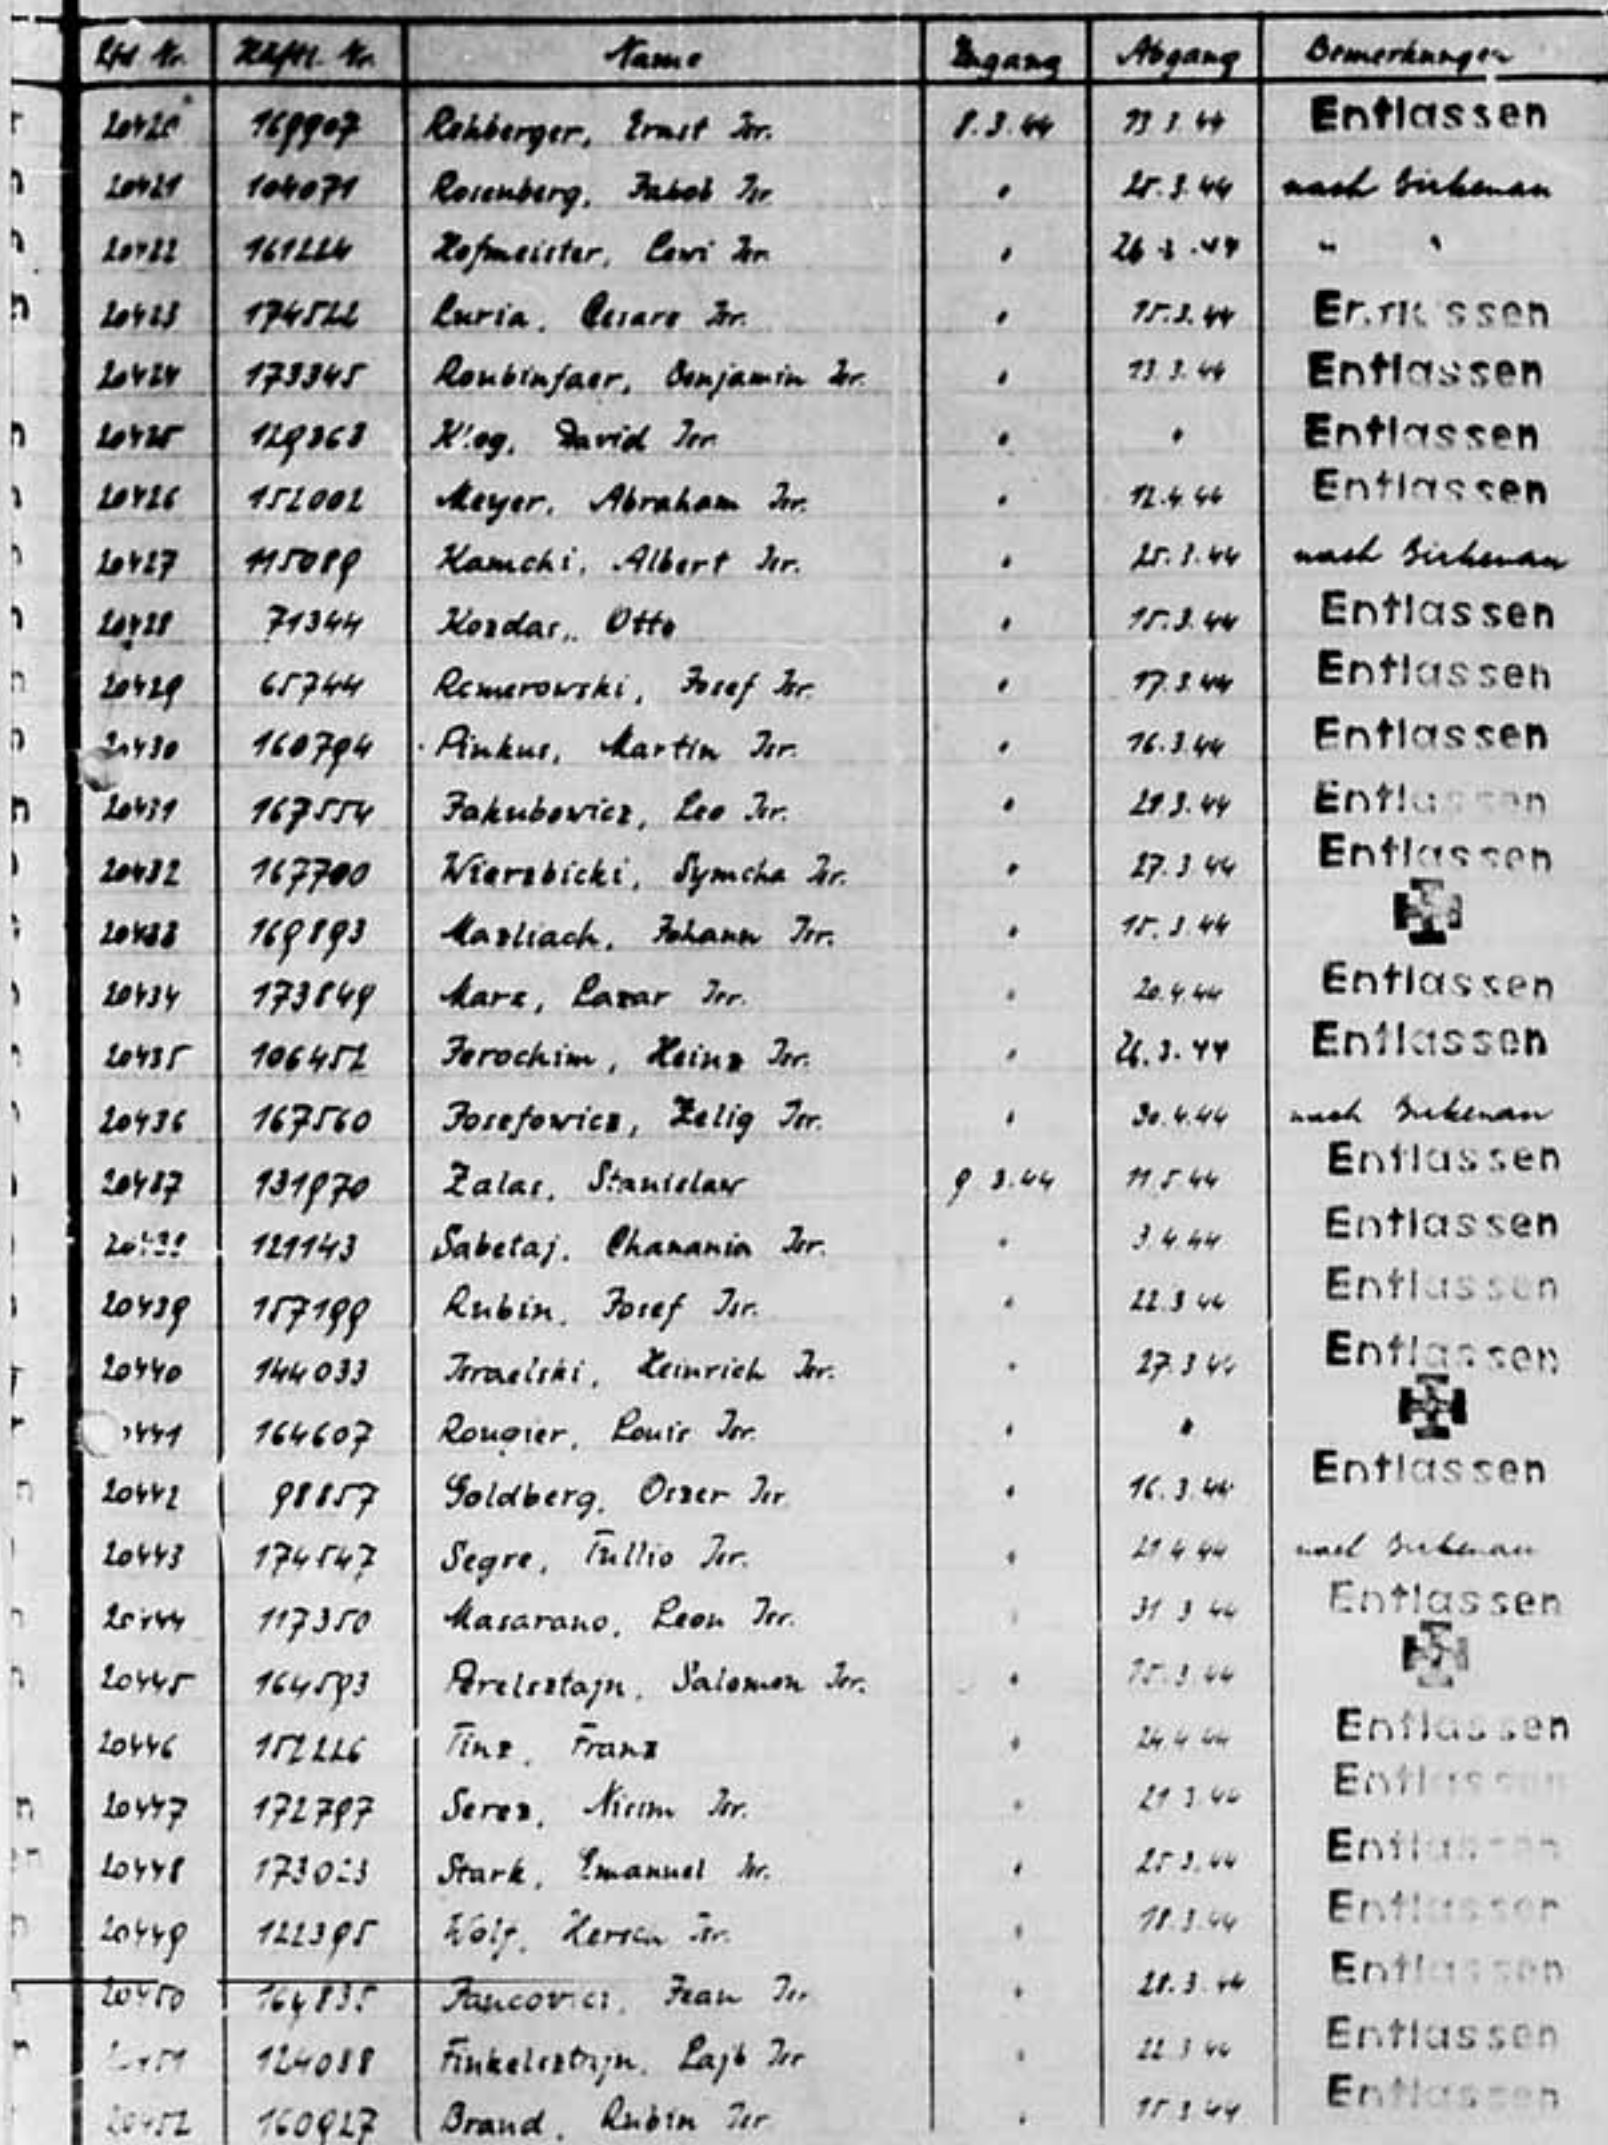 Lfd Nr. Häftl. Nr. Name Zugang Abgang Bemerkungen
20420 169907 Rehberger, Ernst Isr. 8.3.44 13.3.44 Entlassen
20421 104071 Rosenberg, Jakob Isr. " 25.3.44 nach Birkenau
20422 161224 Hofmeister, Lewi Isr. " 26.3.44 " "
20423 174522 Luria, Cesare Isr. " 15.3.44 Entlassen
20424 173345 Roubinfaer, Benjamin Isr. " 13.3.44 Entlassen
20425 129363 David Isr. " " Entlassen
20426 152002 Meyer, Abraham Isr. " 12.4.44 Entlassen
20427 115089 Kamchi, Albert Isr. " 25.3.44 nach Birkenau
20428 71344 Kozdas, Otto " 15.3.44 Entlassen
20429 65744 Romerowski, Josef Isr. " 17.3.44 Entlassen
20430 160794 Pinkus, Martin Isr. " 16.3.44 Entlassen
20431 167554 Jakubowicz, Leo Isr. " 21.3.44 Entlassen
20432 167700 Wierzbicki, Symcha Isr. " 27.3.44 Entlassen
20433 169893 Mazliach, Johann Isr. " 15.3.44
20434 173849 Marx, Lazar Isr. " 20.4.44 Entlassen
20435 106452 Jerochim, Heinz Isr. " 26.3.44 Entlassen
20436 167560 Josefowicz, Zelig Isr. " 30.4.44 nach Birkenau
20437 131970 Zalas, Stanislaw 9.3.44 11.5.44 Entlassen
20438 121143 Sabetaj, Chanania Isr. " 3.4.44 Entlassen
20439 157199 Rubin, Josef Isr. " 22.3.44 Entlassen
20440 144033 Israelski, Heinrich Isr. " 27.3.44 Entlassen
20441 164607 Rougier, Louis Isr. " "
20442 98857 Goldberg, Oszer Isr. " 16.3.44 Entlassen
20443 174547 Segre, Tullio Isr. " 21.4.44 nach Birkenau
20444 117350 Masarano, Leon Isr. " 31.3.44 Entlassen
20445 164593 Perelsztajn, Salomon Isr. " 15.3.44
20446 152226 Tinz, Franz " 24.4.44 Entlassen
20447 172797 Serez, Nissim Isr. " 21.3.44 Entlassen
20448 Stark, Emanuel Isr. " 25.3.44 Entlassen
20449 122395 Wolf, Hersch Isr. " 18.3.44 Entlassen
20450 164835 Jancovici, Jean Isr. " 28.3.44 Entlassen
20451 124088 Finkelsztajn, Lajb Isr. " 22.3.44 Entlassen
20452 160927 Brand, Rubin Isr. " 15.3.44 Entlassen